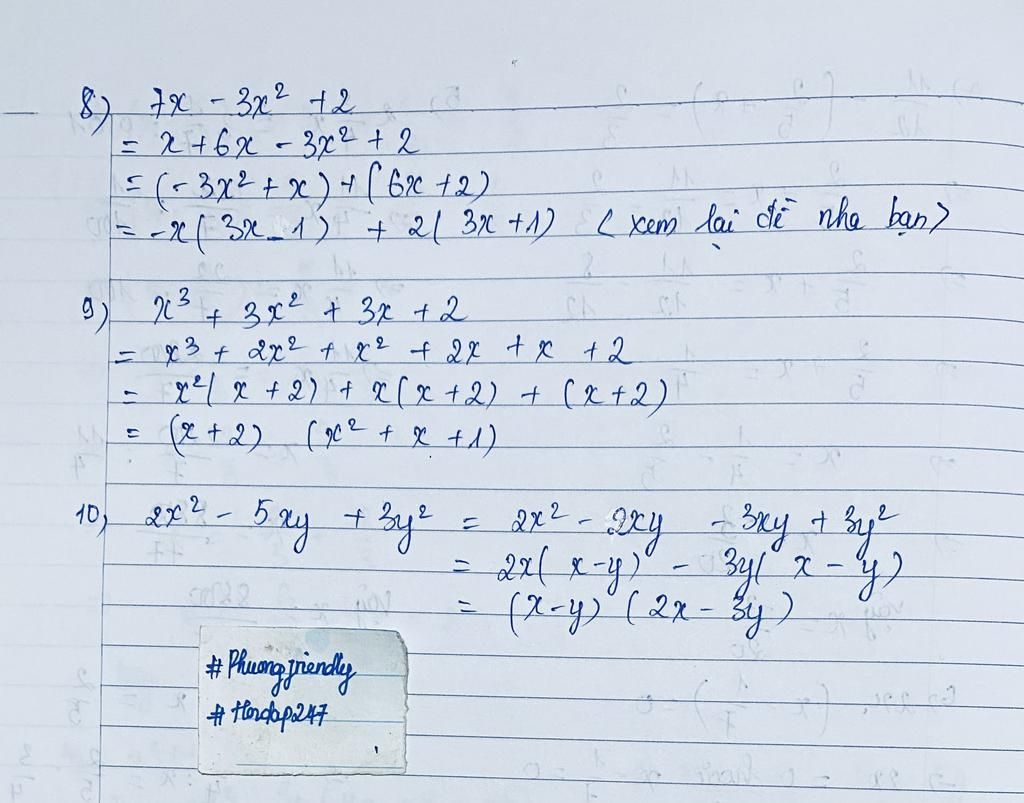 8) 7x - 3x² + 2
= x + 6x - 3x² + 2
= (-3x² + x) + (6x + 2)
= -x(3x - 1) + 2(3x + 1) < xem lại đề nha bạn >
9) x³ + 3x² + 3x + 2
= x³ + 2x² + x² + 2x + x + 2
= x²(x + 2) + x(x + 2) + (x + 2)
= (x + 2) (x² + x + 1)
10) 2x² - 5xy + 3y² = 2x² - 2xy - 3xy + 3y²
= 2x(x - y) - 3y(x - y)
= (x - y) (2x - 3y)
# Phuongfriendly
# Hoidap247